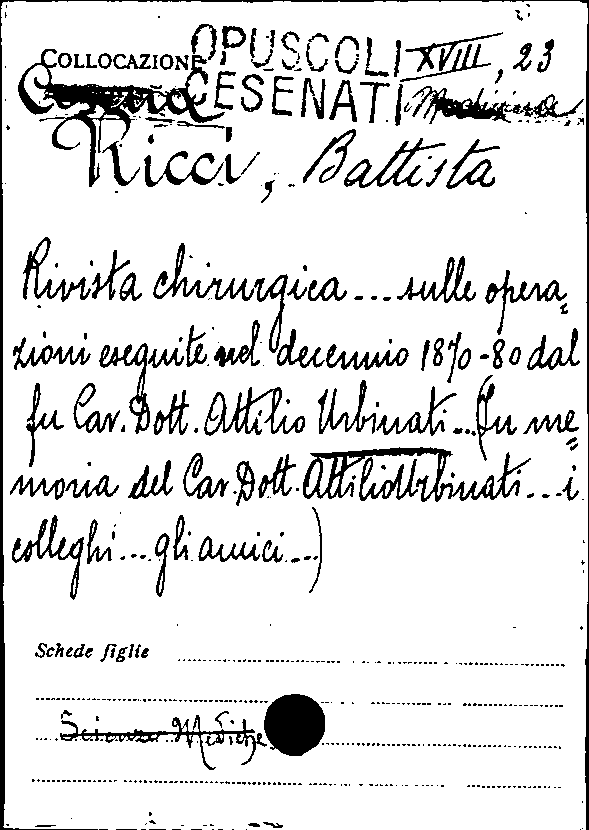 COLLOCAZIONE OPUSCOLI XVIII, 23
Cesena CESENATI Medicina
Ricci, Battista
Rivista chirurgica ... sulle opera=
zioni eseguite nel decennio 1870-80 dal
fu Cav. Dott. Attilio Urbinati ... (In me=
moria del Cav. Dott. Attilio Urbinati ... i
colleghi ... gli amici ...)
Schede figlie
Scienze Mediche